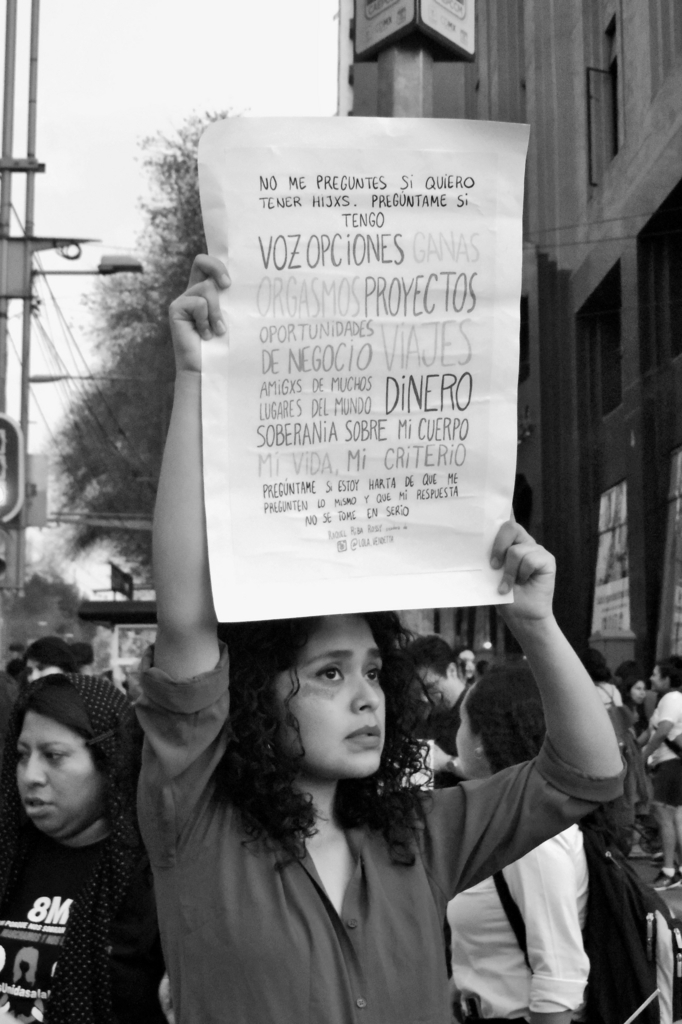 NO ME PREGUNTES SI QUIERO
TENER HIJXS. PREGÚNTAME SI
TENGO
VOZ OPCIONES GANAS
ORGASMOS PROYECTOS
OPORTUNIDADES
DE NEGOCIO VIAJES
AMIGXS DE MUCHOS
LUGARES DEL MUNDO DINERO
SOBERANÍA SOBRE MI CUERPO
MI VIDA, MI CRITERIO
PREGÚNTAME SI ESTOY HARTA DE QUE ME
PREGUNTEN LO MISMO Y QUE MI RESPUESTA
NO SE TOME EN SERIO
RAQUEL RIBA ROSSY
@LOLA.VENDETTA
8M